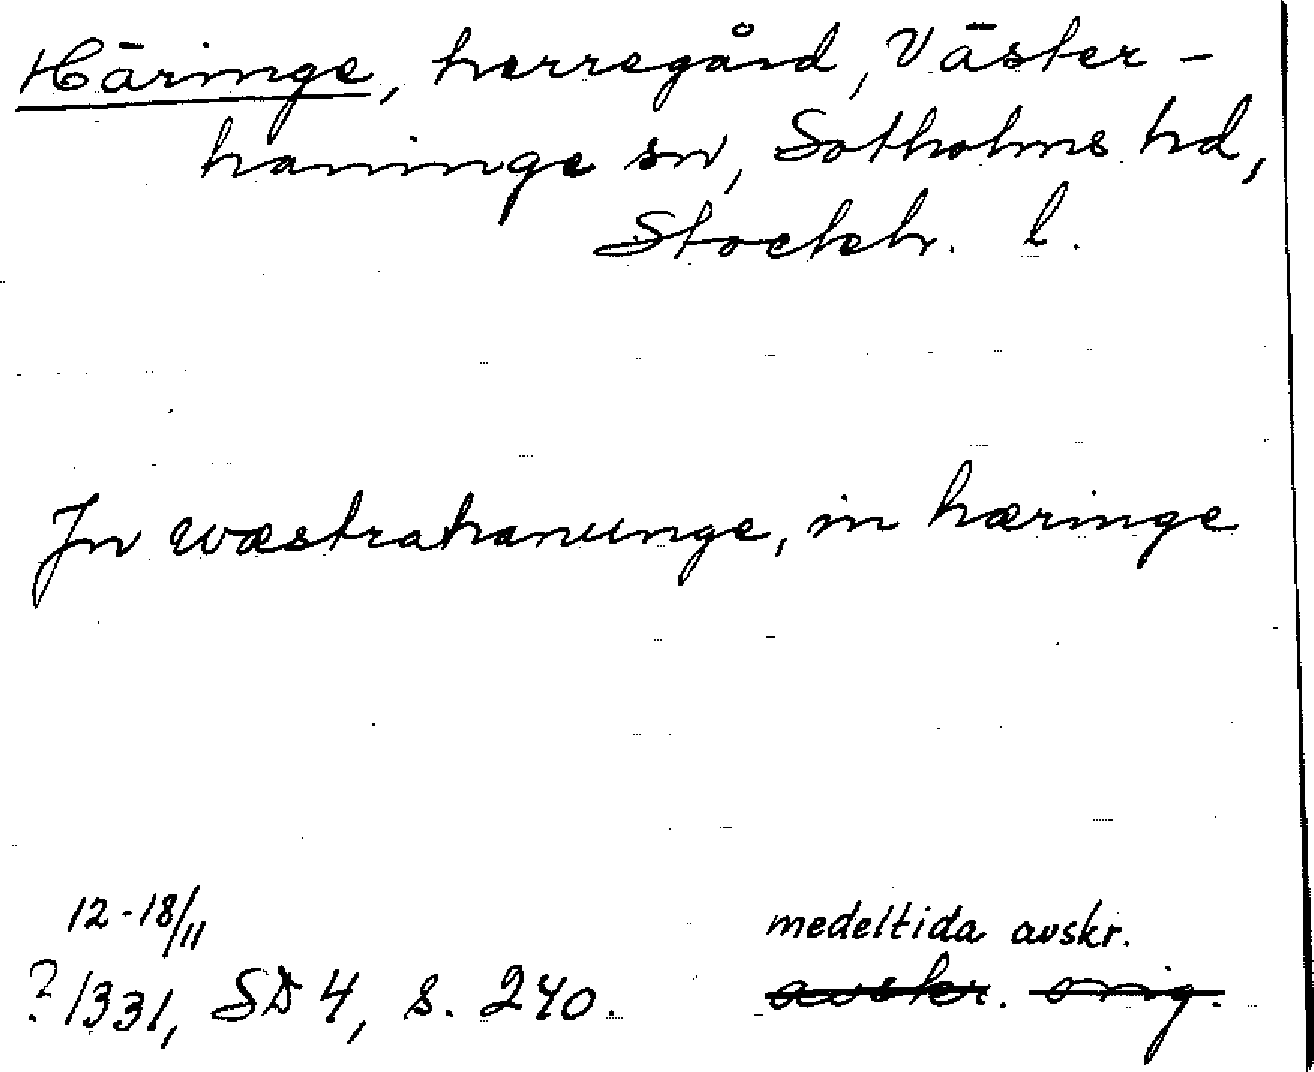 Häringe, herregård, Väster-
haninge sn, Sotholms hd,
Stockh. l.
Jn wæstrahanunge, in hæringe
12-18/11
? 1331, SD 4, s. 240.
medeltida avskr.
avskr. orig.